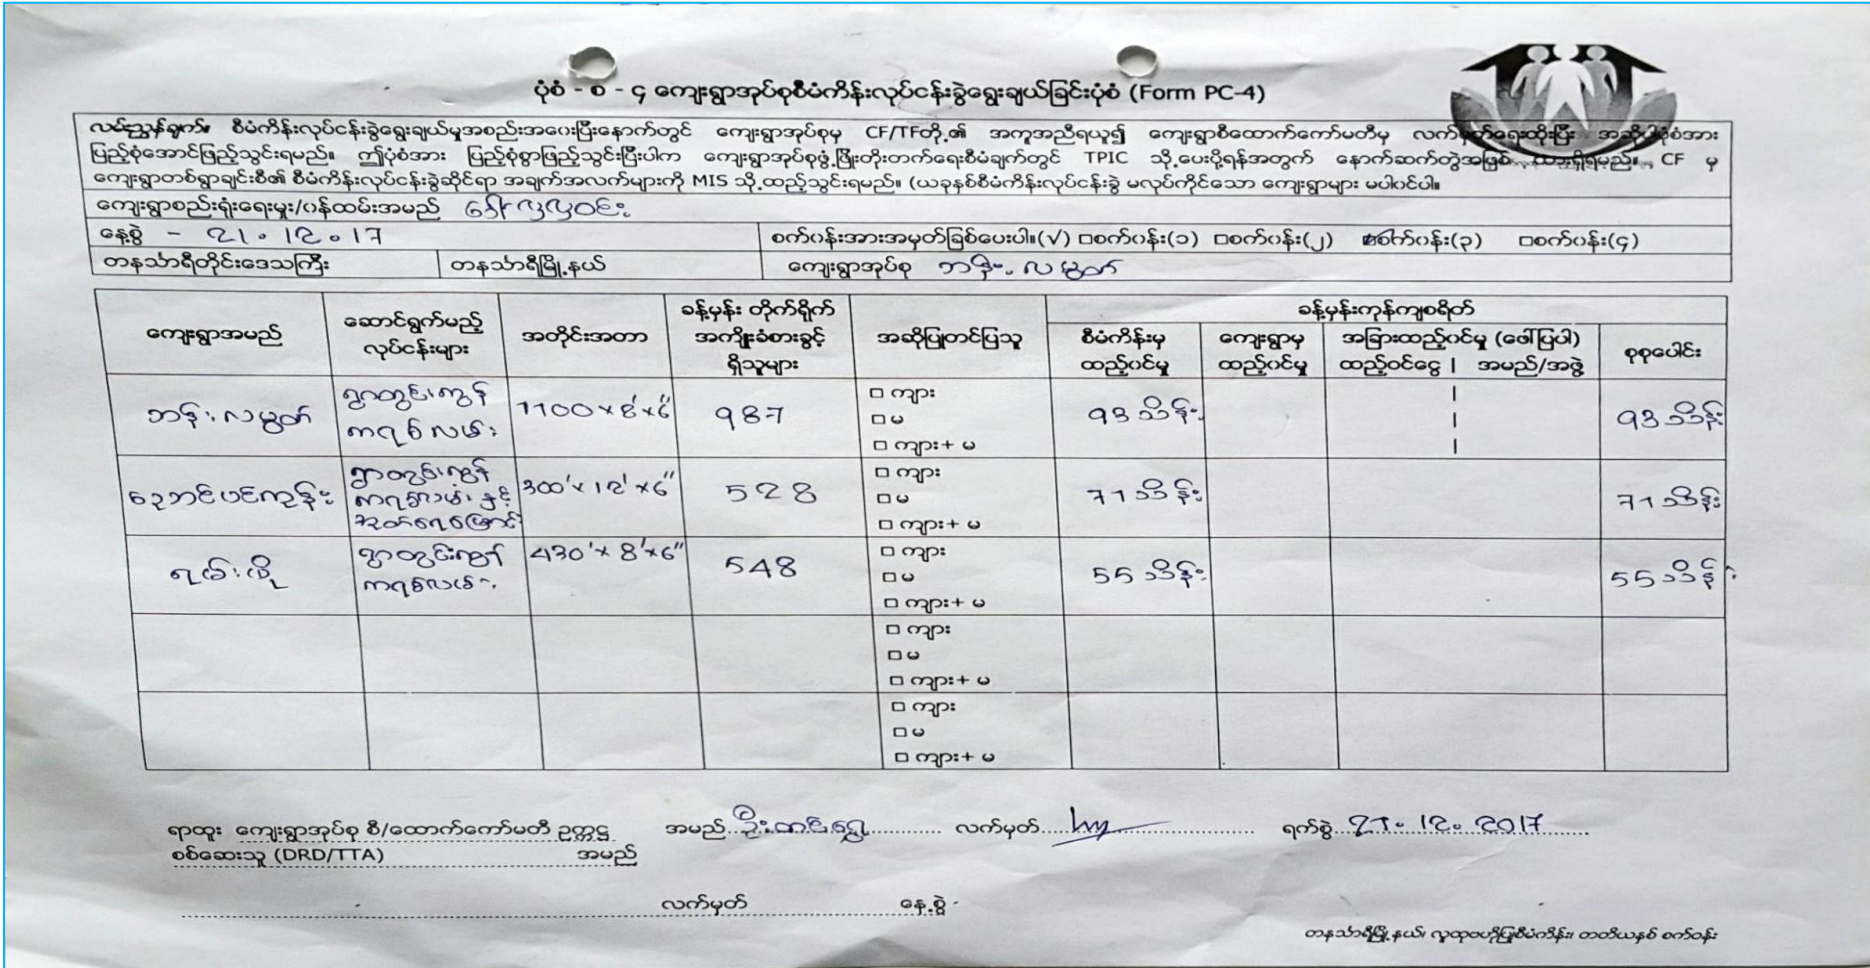 ပုံစံ - စ - ၄ ကျေးရွာအုပ်စုစီမံကိန်းလုပ်ငန်းခွဲရွေးချယ်ခြင်းပုံစံ (Form PC-4)
လမ်းညွှန်ချက်။ စီမံကိန်းလုပ်ငန်းခွဲရွေးချယ်မှုအစည်းအဝေးပြီးနောက်တွင် ကျေးရွာအုပ်စုမှ CF/TFတို့၏ အကူအညီရယူ၍ ကျေးရွာစီထောက်ကော်မတီမှ လက်မှတ်ရေးထိုးပြီး အဆိုပါပုံစံအား
ပြည့်စုံအောင်ဖြည့်သွင်းရမည်။ ဤပုံစံအား ပြည့်စုံစွာဖြည့်သွင်းပြီးပါက ကျေးရွာအုပ်စုဖွံ့ဖြိုးတိုးတက်ရေးစီမံချက်တွင် TPIC သို့ပေးပို့ရန်အတွက် နောက်ဆက်တွဲအဖြစ် ထားရှိရမည်။ CF မှ
ကျေးရွာတစ်ရွာချင်းစီ၏ စီမံကိန်းလုပ်ငန်းခွဲဆိုင်ရာ အချက်အလက်များကို MIS သို့ထည့်သွင်းရမည်။ (ယခုနှစ်စီမံကိန်းလုပ်ငန်းခွဲ မလုပ်ကိုင်သော ကျေးရွာများ မပါဝင်ပါ။
ကျေးရွာစည်းရုံးရေးမှူး/ဝန်ထမ်းအမည် ဒေါ်လှလှဝင်း
နေ့စွဲ - 21.12.17 စက်ဝန်းအားအမှတ်ခြစ်ပေးပါ။(√) □စက်ဝန်း(၁) □စက်ဝန်း(၂) ☑စက်ဝန်း(၃) □စက်ဝန်း(၄)
တနင်္သာရီတိုင်းဒေသကြီး တနင်္သာရီမြို့နယ် ကျေးရွာအုပ်စု ဘန်းလမွတ်
ကျေးရွာအမည် ဆောင်ရွက်မည့် လုပ်ငန်းများ အတိုင်းအတာ ခန့်မှန်း တိုက်ရိုက် အကျိုးခံစားခွင့် ရှိသူများ အဆိုပြုတင်ပြသူ ခန့်မှန်းကုန်ကျစရိတ်
စီမံကိန်းမှ ထည့်ဝင်မှု ကျေးရွာမှ ထည့်ဝင်မှု အခြားထည့်ဝင်မှု (ဖေါ်ပြပါ) ထည့်ဝင်ငွေ | အမည်/အဖွဲ့ စုစုပေါင်း
ဘန်းလမွတ် ရွာတွင်းကွန်ကရစ်လမ်း 1100×8'×6" 987 □ ကျား 93 သိန်း 93 သိန်း
□ မ
□ ကျား+ မ
ရွာတွင်းကွန်ကရစ်လမ်းနှင့် 300'×12'×6" 528 □ ကျား 71 သိန်း 71 သိန်း
□ မ
□ ကျား+ မ
ရွာတွင်းကွန်ကရစ်လမ်း 430'×8'×6" 548 □ ကျား 55 သိန်း 55 သိန်း
□ မ
□ ကျား+ မ
□ ကျား
□ မ
□ ကျား+ မ
□ ကျား
□ မ
□ ကျား+ မ
ရာထူး ကျေးရွာအုပ်စု စီ/ထောက်ကော်မတီ ဥက္ကဋ္ဌ အမည် ဦးတင်ရွှေ လက်မှတ် ရက်စွဲ 21.12.2017
စစ်ဆေးသူ (DRD/TTA) အမည်
လက်မှတ် နေ့စွဲ
တနင်္သာရီမြို့နယ်၊ လူထုဗဟိုပြုစီမံကိန်း၊ တတိယနှစ် စက်ဝန်း